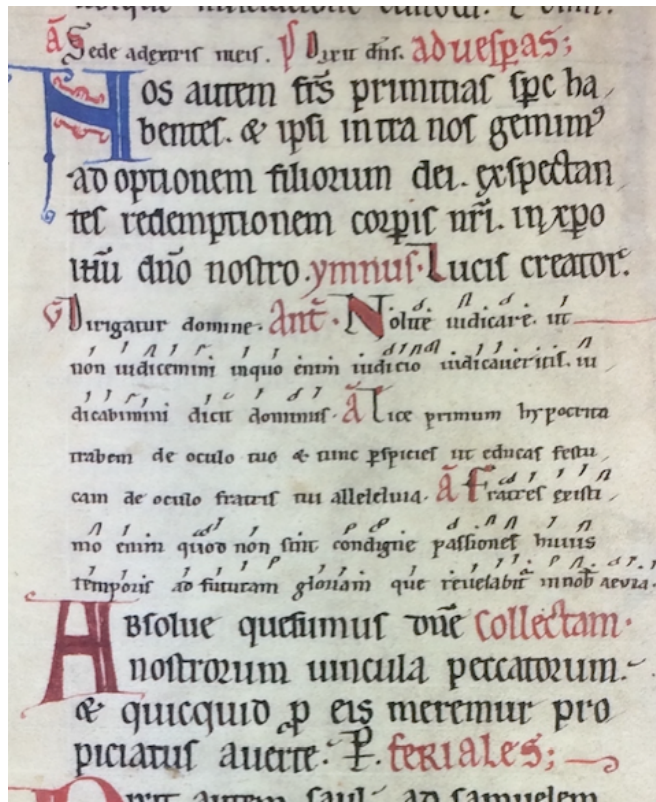 ā Sede adextris meis. ps Dixit dñs. aduesꝑas;
Nos autem fr̄s primitias sp̄c ha
bentes. & ipsi intra nos gemim᷒
adoptionem filiorum dei. exspectan
tes redemptionem corꝑis nr̄i. in xp̄o
ih̄u dn̄o nostro. ymnus. Lucis creator.
v̄ Dirigatur domine. Ant̄. Nolite iudicare. ut
non iudicemini inquo enim iudicio iudicaueritis. iu
dicabimini dicit dominus. ā Eice primum hypocrita
trabem de oculo tuo & tunc ꝑspicies ut educas festu
cam de oculo fratris tui alleleluia. ā Fratres existi
mo enim quod non sunt condigne passiones huius
temporis ad futuram gloriam que reuelabit᷑ innob̄ aeuia.
Absolue quesumus dn̄e collectam.
nostrorum uincula peccatorum.
& quicquid ꝓ eis meremur pro
piciatus auerte. P. feriales;
Dixit autem saul ad samuelem